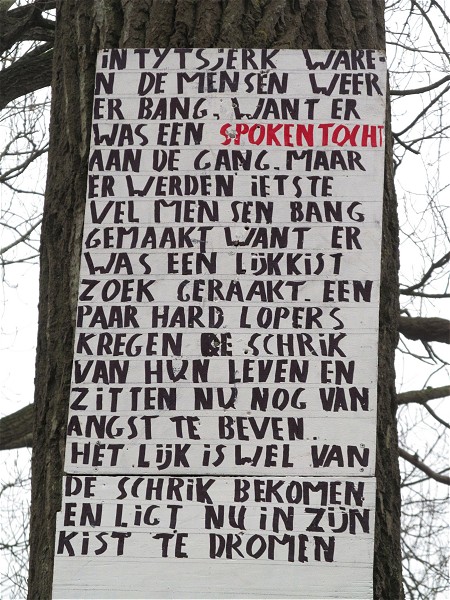 iN TYTSJERK WARE-
N DE MENSEN WEER
ER BANG. WANT ER
WAS EEN SPOKENTOCHT
AAN DE GANG. MAAR
ER WERDEN iETSTE
VEL MENSEN BANG
GEMAAKT WANT ER
WAS EEN LIJKKIST
ZOEK GERAAKT. EEN
PAAR HARD LOPERS
KREGEN DE SCHRIK
VAN HUN LEVEN EN
ZITTEN NU NOG VAN
ANGST TE BEVEN.
HET LIJK IS WEL VAN
DE SCHRIK BEKOMEN
EN LIGT NU IN ZIJN
KIST TE DROMEN